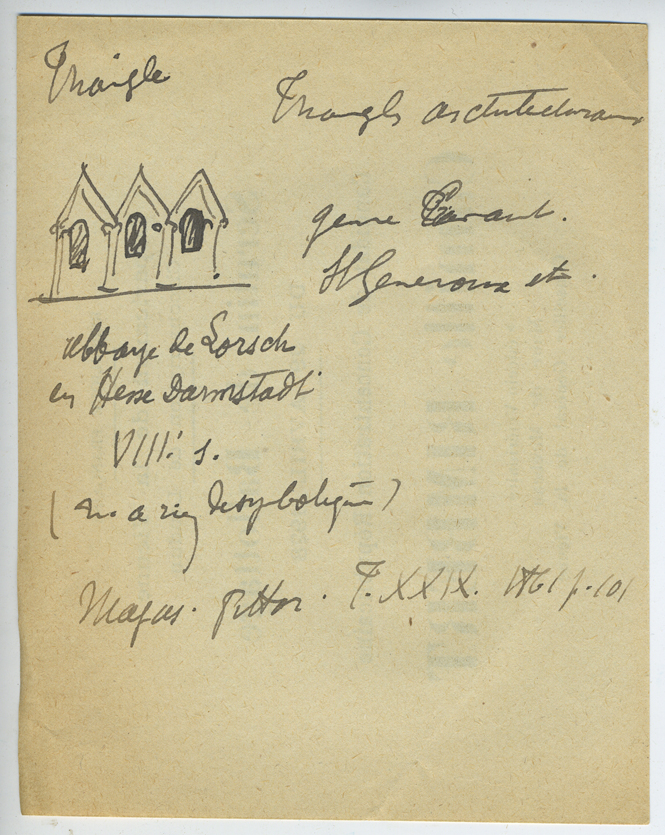 Triangle
Triangles architecturaux
genre
St Generoux et.
abbaye de Lorsch
en Hesse Darmstadt
VIII.e s.
(n'a rien de symbolique)
Magas. Pittor. T. XXIX. 1861 p. 101